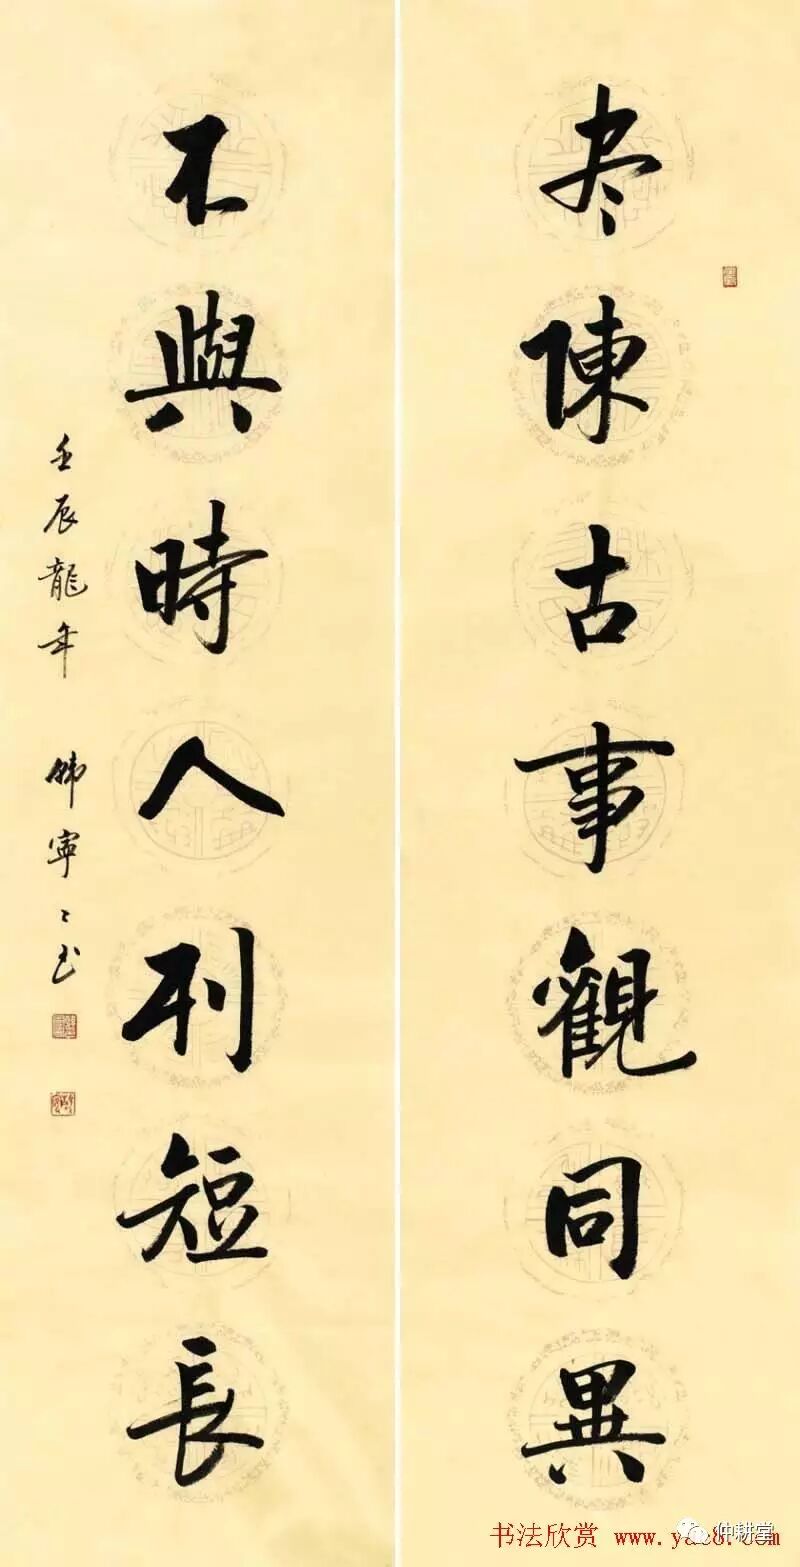 尽陳古事觀同異
不與時人列短長
壬辰龍年 韩寧〻书
书法欣赏 www.yac8.com
仲耕堂